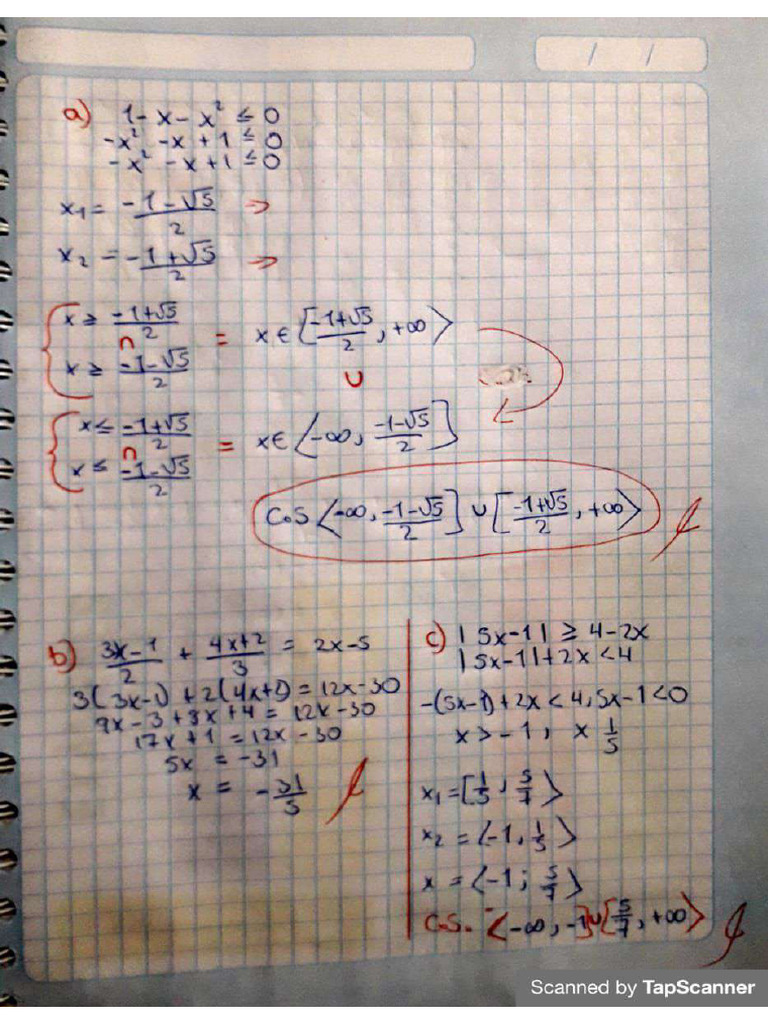 / /
a) 1 - x - x² ≤ 0
-x² - x + 1 ≤ 0
-x² - x + 1 ≤ 0
x₁ = (-1 - √5)/2 ⇒
x₂ = (-1 + √5)/2 ⇒
{ x ≥ (-1+√5)/2
∩ = x ∈ [(-1+√5)/2, +∞⟩
x ≥ (-1-√5)/2
∪
{ x ≤ (-1+√5)/2
∩ = x ∈ ⟨-∞, (-1-√5)/2]
x ≤ (-1-√5)/2
C.S ⟨-∞, (-1-√5)/2] ∪ [(-1+√5)/2, +∞⟩
b) (3x-1)/2 + (4x+2)/3 = 2x-5
3(3x-1) + 2(4x+2) = 12x-30
9x - 3 + 8x + 4 = 12x - 30
17x + 1 = 12x - 30
5x = -31
x = -31/5
c) |5x-1| ≥ 4-2x
|5x-1|+2x < 4
-(5x-1)+2x < 4, 5x-1 < 0
x > -1, x 1/5
x₁ = [1/5, 5/7⟩
x₂ = ⟨-1, 1/5⟩
x = ⟨-1; 5/7⟩
C.S. ⟨-∞, -1] ∪ [5/7, +∞⟩
Scanned by TapScanner